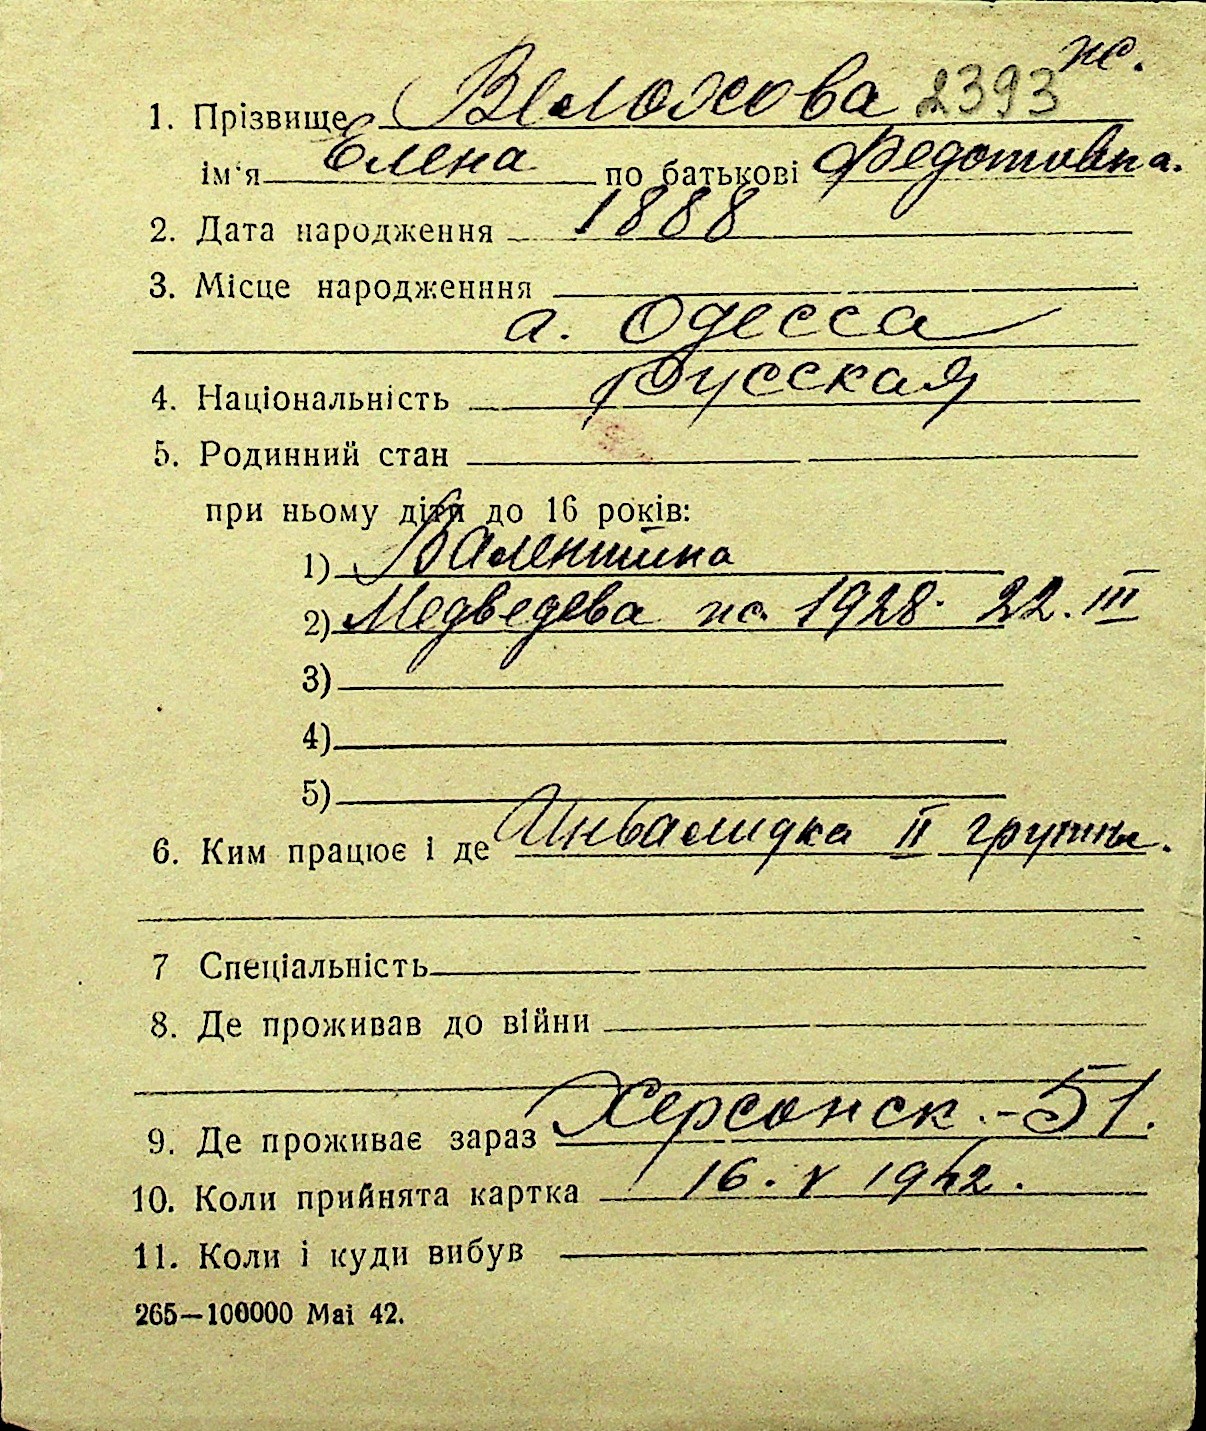 ж.
1. Прізвище Велохова 2393
ім'я Елена по батькові Федотовна.
2. Дата народження 1888
3. Місце народженння
г. Одесса
4. Національність Русская
5. Родинний стан
при ньому діти до 16 років:
1) Валентина
2) Медведева ж. 1928. 22. III
3)
4)
5)
6. Ким працює і де Инвалидка II группы.
7 Спеціальність
8. Де проживав до війни
9. Де проживає зараз Херсонск. - 51.
10. Коли прийнята картка 16. V 1942.
11. Коли і куди вибув
265—100000 Mai 42.